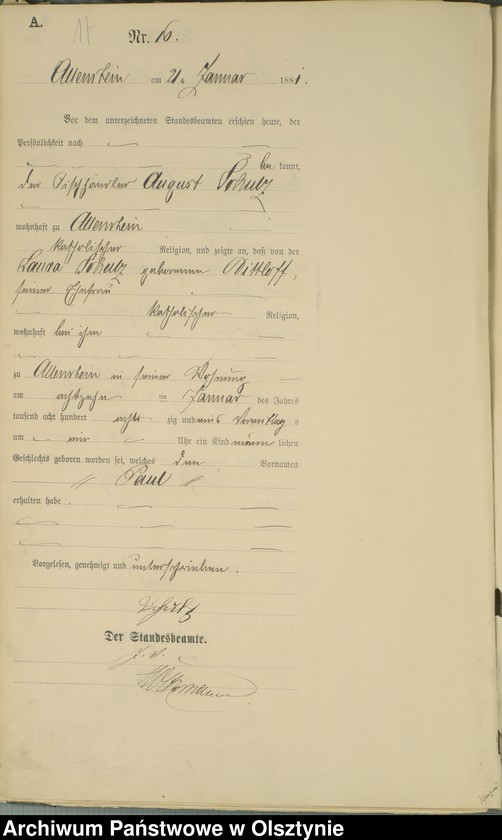 A.
17
Nr. 16.
Allenstein am 21. Januar 1881.
Vor dem unterzeichneten Standesbeamten erschien heute, der
Persönlichkeit nach
be kannt,
der Tischler August Schulz
wohnhaft zu Allenstein
katholischer Religion, und zeigte an, daß von der
Laura Schulz geborenen Dittloff,
seiner Ehefrau
katholischer Religion,
wohnhaft bei ihm
zu Allenstein in seiner Wohnung
am achtzehn ten Januar des Jahres
tausend acht hundert acht zig und eins Vormittag s
um Uhr ein Kind männ lichen
Geschlechts geboren worden sei, welches den Vornamen
Paul
erhalten habe.
Vorgelesen, genehmigt und unterschrieben.
Schulz
Der Standesbeamte.
J. V.
Archiwum Państwowe w Olsztynie